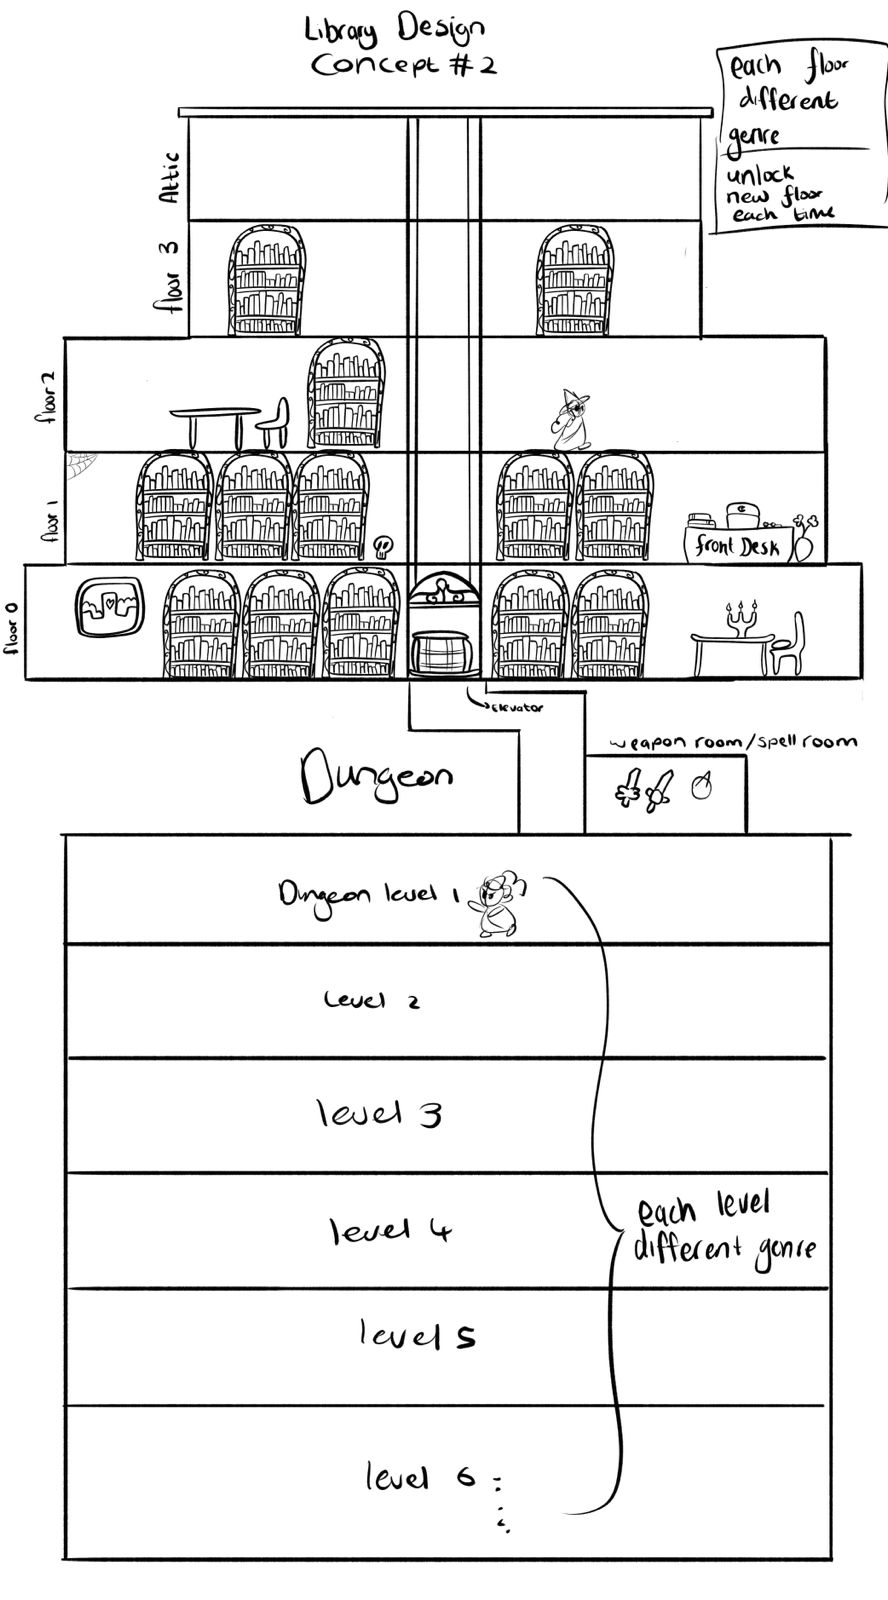 Library Design
Concept #2
each floor
different
genre
unlock
new floor
each time
Attic
floor 3
floor 2
floor 1
front Desk
floor 0
Elevator
weapon room/spell room
Dungeon
Dungeon level 1
Level 2
level 3
level 4
each level
different genre
level 5
level 6